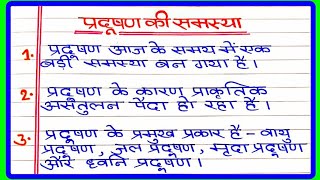 प्रदूषण की समस्या
1. प्रदूषण आज के समय में एक
बड़ी समस्या बन गया है।
2. प्रदूषण के कारण प्राकृतिक
असंतुलन पैदा हो रहा है।
3. प्रदूषण के प्रमुख प्रकार है - वायु
प्रदूषण, जल प्रदूषण, मृदा प्रदूषण
और ध्वनि प्रदूषण।